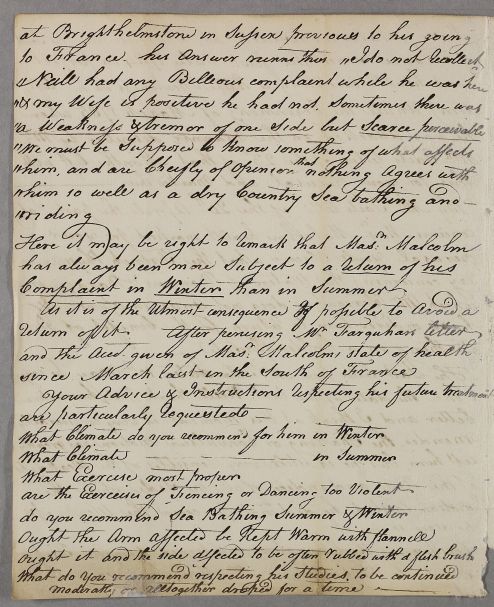 at Brighthelmstone in Sussex previous to his going
to France his answer runs this "I do not Recollect
"Neill had any Billeous complaint while he was here
"& my Wife is positive he had not. Sometimes there was
"a Weakness & tremor of one side but Scarce perceivable
"We must be Suppose'd to Know something of what affects
"him, and are Cheifly of Opinion that nothing Agrees with
"him so well as a dry Country Sea bathing and
"riding
Here it may be right to remark that Mas.r Malcolm
has always been more Subject to a return of his
Complaint in Winter than in Summer
As it is of the Utmost consequence if possible to Avoid a
return of it After perusing Mr Farquhars letter
and the Acct. given of Mas.r Malcolms state of health
since March last in the South of France
Your Advice & Instructions respecting his future treatment
are particularly requested
What Climate do you recommend for him in Winter
What Climate in Summer
What Exercise most proper
are the Exercises of Fencing or Dancing too Violent
do you recommend Sea Bathing Summer & Winter
Ought the Arm affected be Kept Warm with flannell
ought it and the side affected to be often rubbed with a flesh brush
What do you recommend respecting his Studies, to be continued
moderatly or alltogether droped for a time